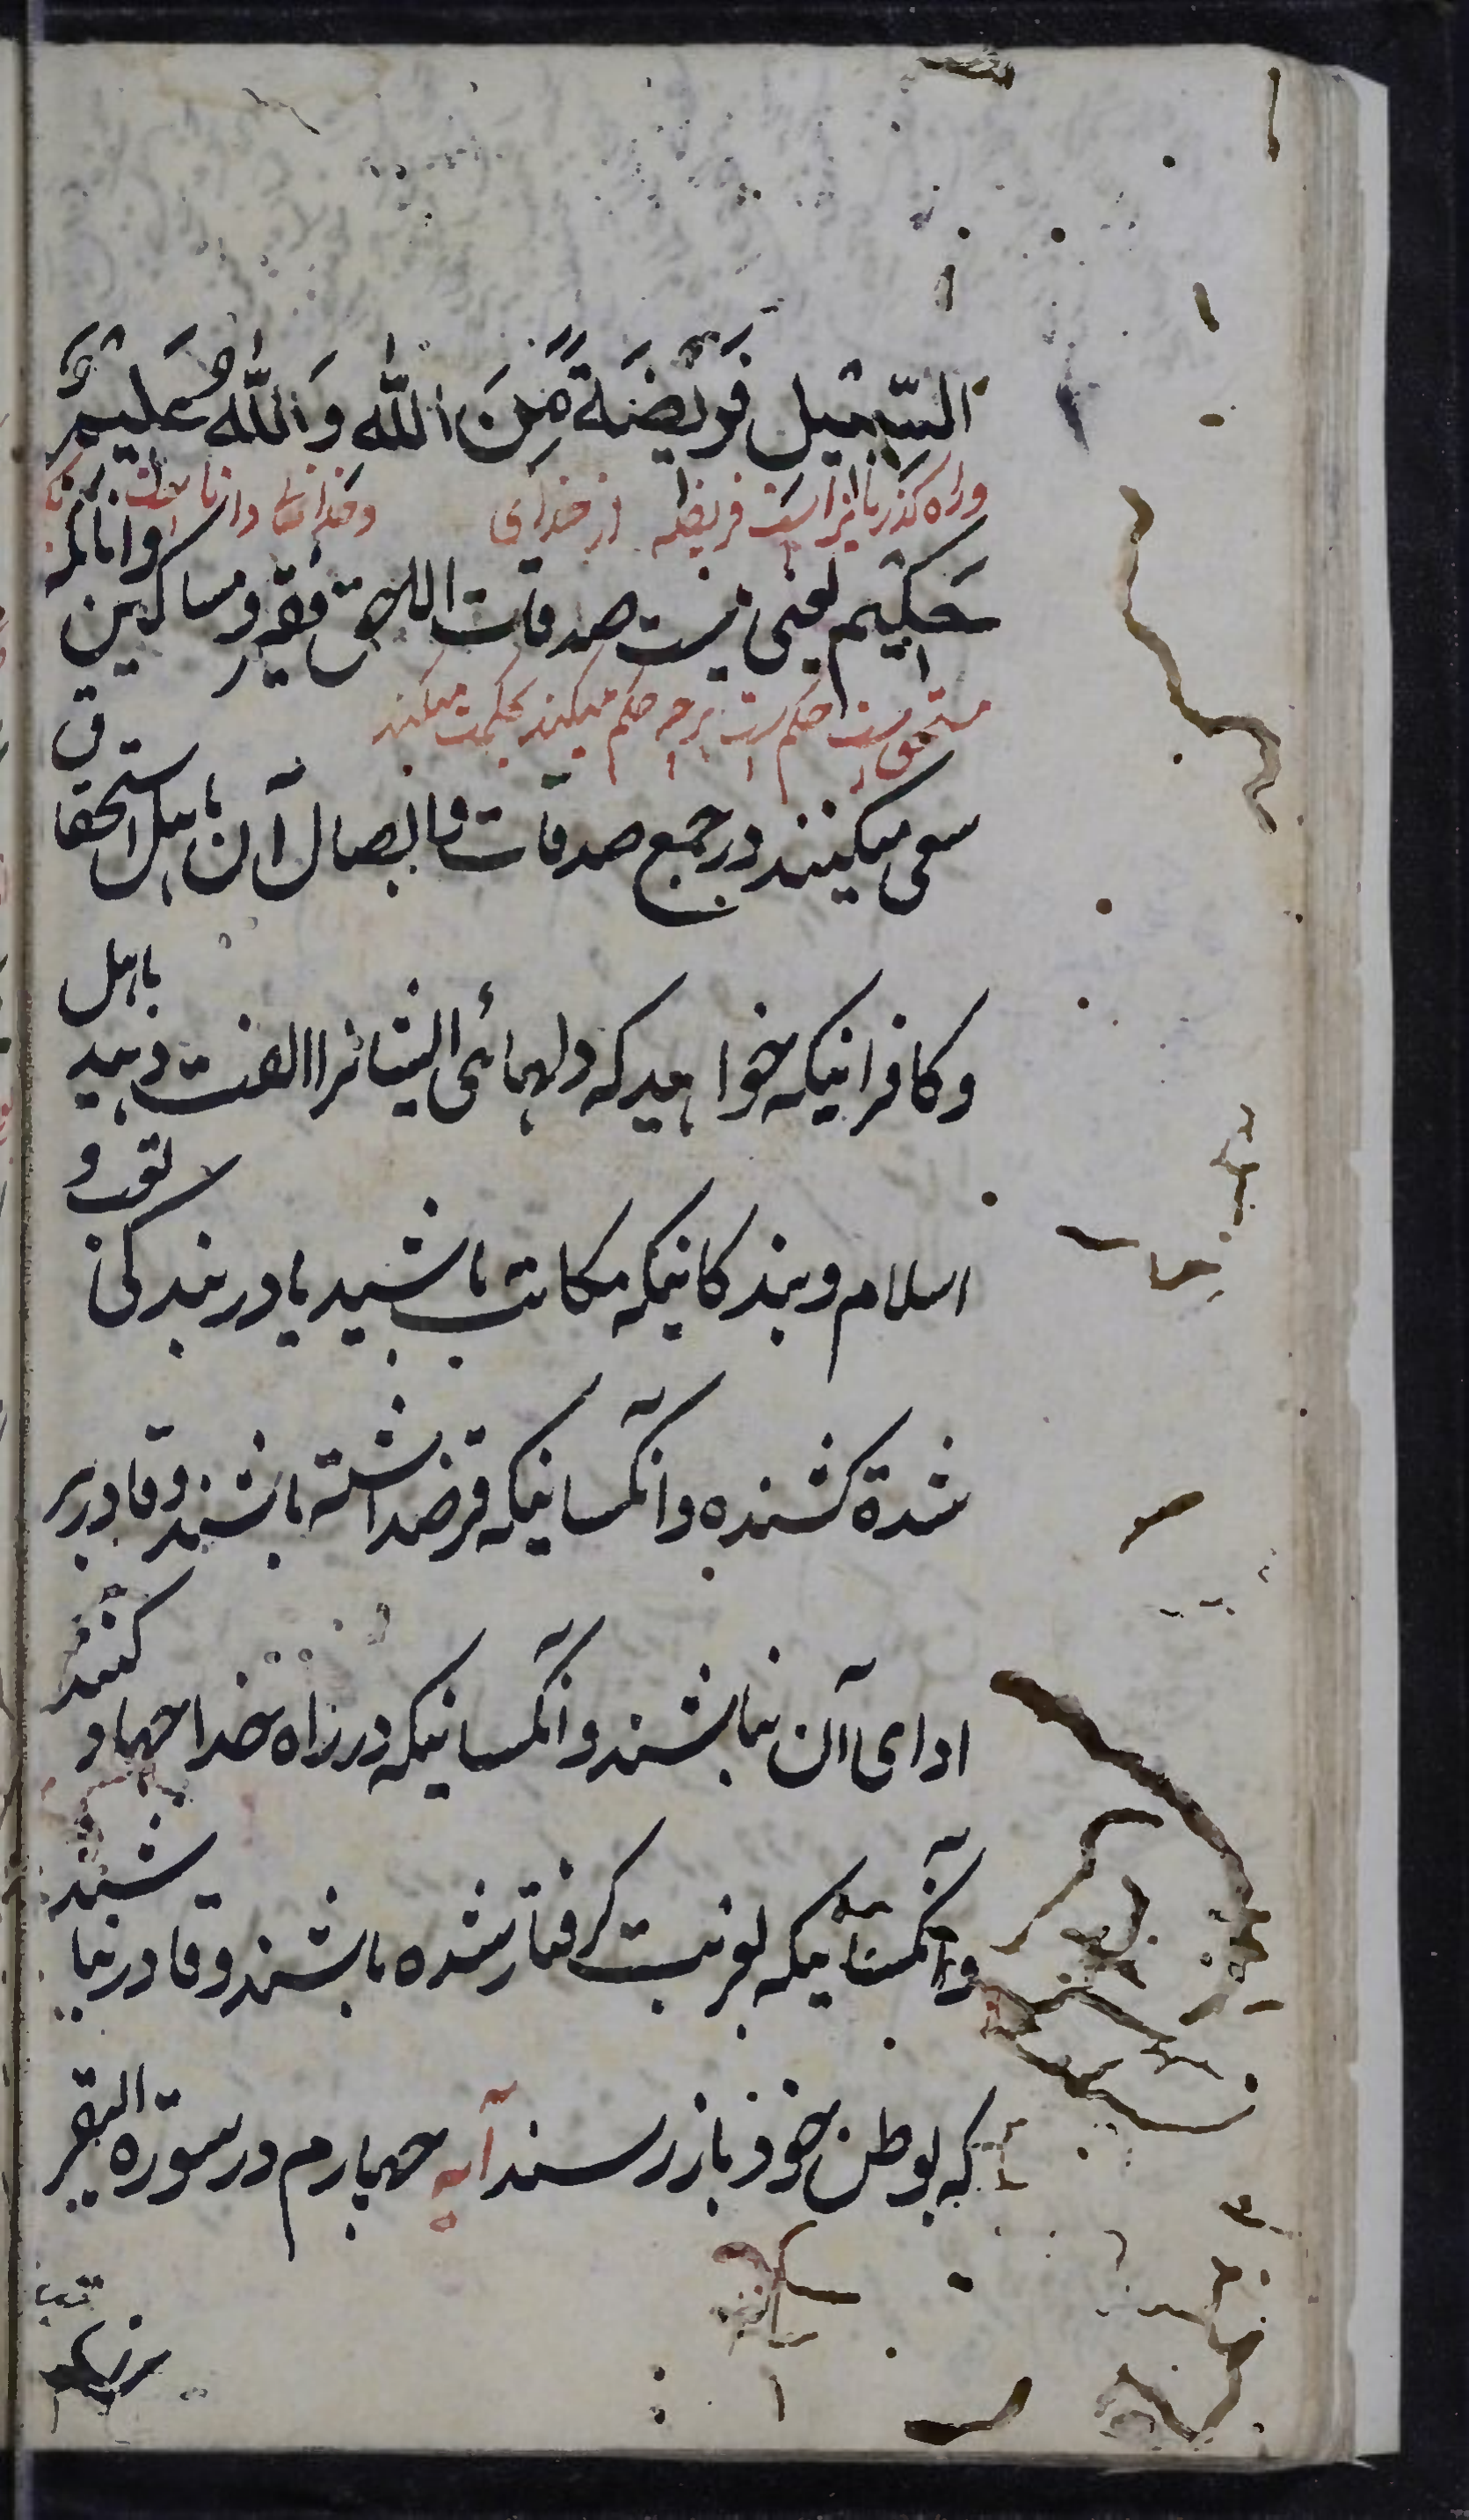 السَّبِیْلِ فَرِیْضَةً مِّنَ اللّٰهِ وَاللّٰهُ عَلِیْمٌ
وراه کذریانراست فریضه از خدای وخدای داناست
حَکِیْمٌ یعنی نیست صدقات الا حق فقیر و مساکین وانانکه
مستحق است حکم است هرچه حکم میکند بحکمت میکند
سعی میکنند در جمع صدقات وایصال آن باهل استحقاق
وکافرانیکه خواهید که دلهائی ایشانرا الفت دهید باهل
اسلام وبندکانیکه مکاتب باشید یا در بندکی تعب و
شدة کشنده وآنکسانیکه قرضداشته باشند وقادر بر
ادای آن نباشند وآنکسانیکه در راه خدا جهاد کنند
وآنکسانیکه بغربت کرفتار شده باشند وقادر نباشند
که بوطن خود باز رسند آیه چهارم در سورة البقر